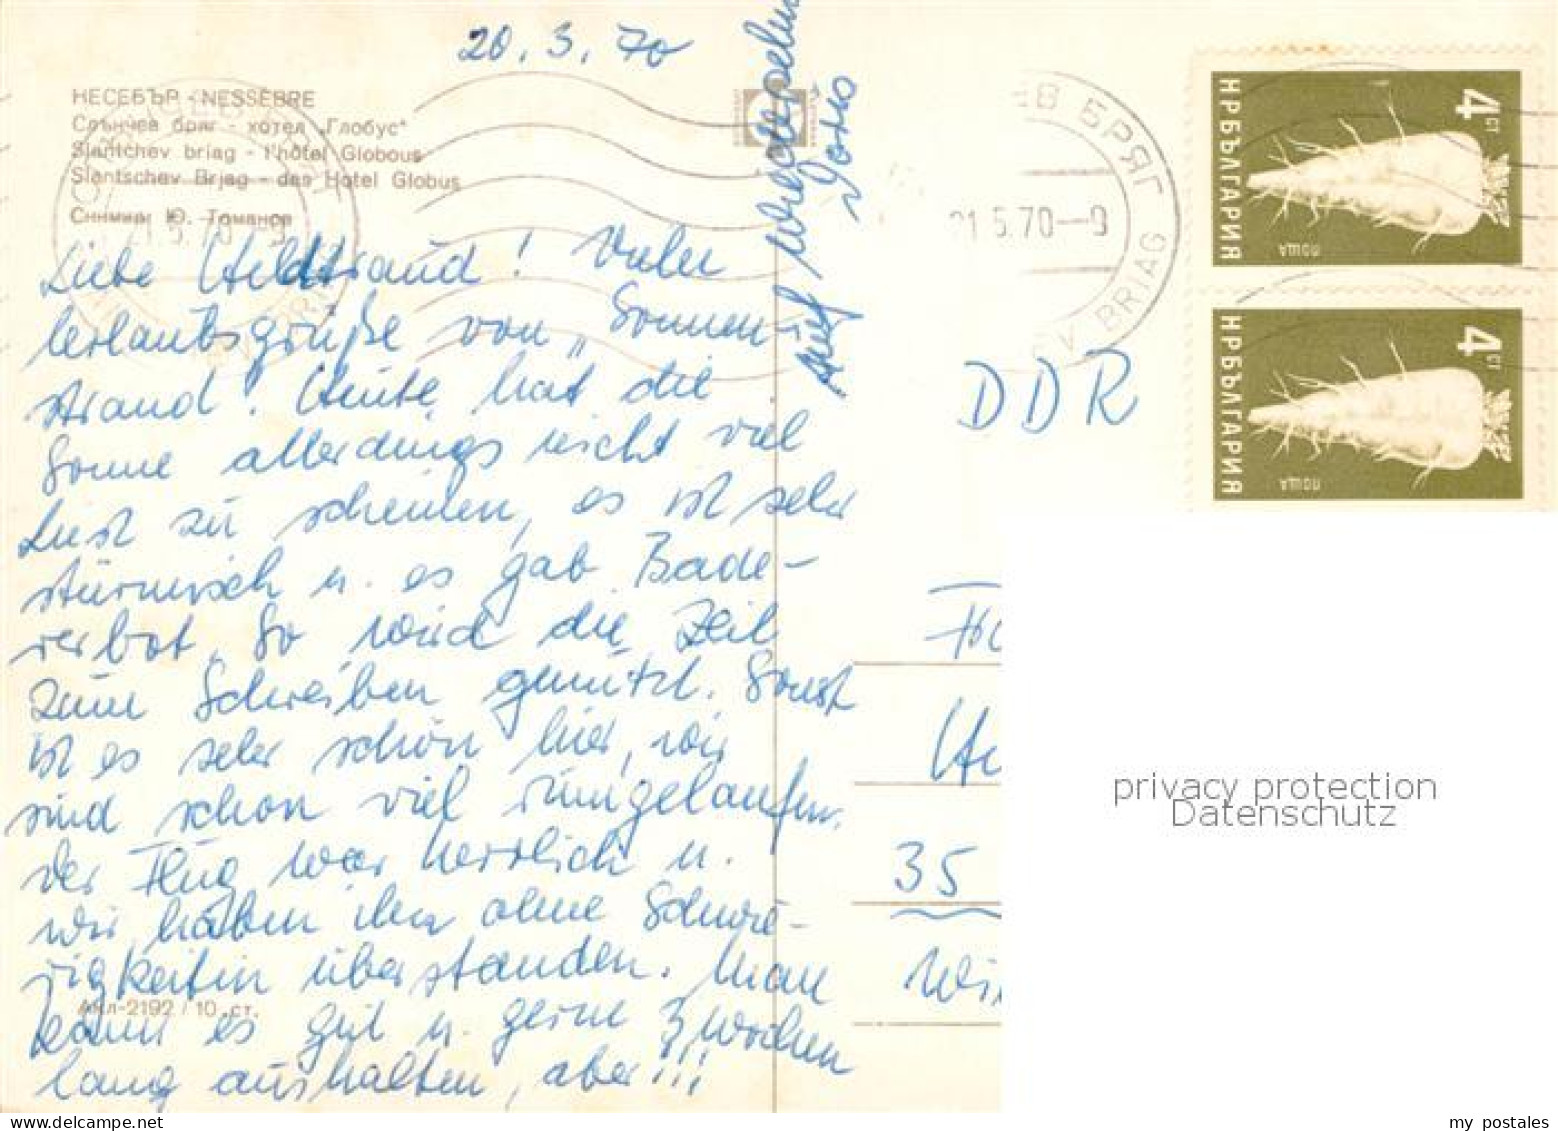 20. 5. 70
НЕСЕБЪР - NESSÈBRE
Слънчев бряг - хотел „Глобус“
Slantchev briag - l'hôtel Globous
Slantschev Brjag - das Hotel Globus
Снимки: Ю. Томанов
21.5.70-9
Liebe Heldtraud! Viele
Urlaubsgrüße von „Sonnen-
strand! Heute hat die
Sonne allerdings nicht viel
Lust zu scheinen, es ist sehr
stürmisch u. es gab Bade-
verbot. So wird die Zeit
zum Schreiben genützt. Sonst
ist es sehr schön hier, wir
sind schon viel rumgelaufen.
Der Flug war herrlich u.
wir haben ihn ohne Schwie-
rigkeiten überstanden. Man
kann es gut u. gerne 3 Wochen
lang aushalten, aber!!!
Акл-2192 / 10 ст.
Auf Wiedersehn
ЕВ БРЯГ
21.5.70-9
V BRIAG
НРБЪЛГАРИЯ
4 СТ
ПОЩА
НРБЪЛГАРИЯ
4 СТ
ПОЩА
DDR
35
privacy protection
Datenschutz
my postales